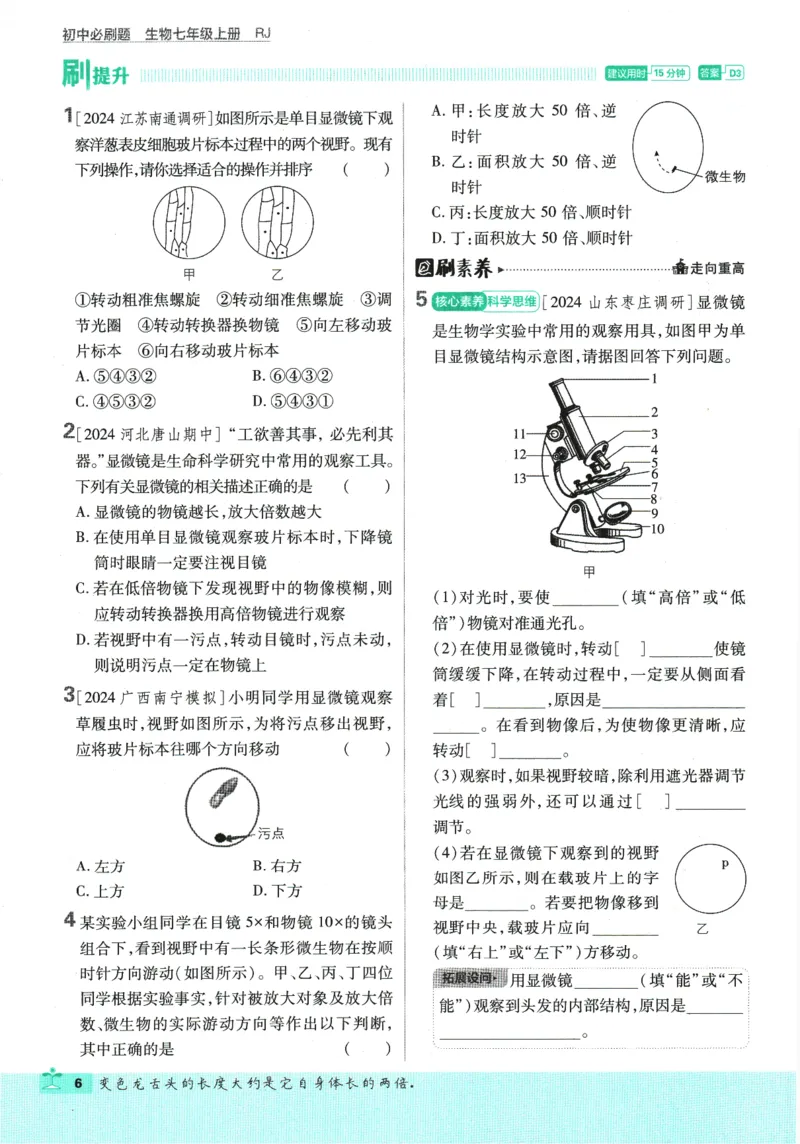 初中必刷题 生物七年级上册 RJ
刷提升
建议用时 15分钟 答案 D3
1[2024 江苏南通调研]如图所示是单目显微镜下观
察洋葱表皮细胞玻片标本过程中的两个视野。现有
下列操作,请你选择适合的操作并排序 ( )
甲 乙
①转动粗准焦螺旋 ②转动细准焦螺旋 ③调
节光圈 ④转动转换器换物镜 ⑤向左移动玻
片标本 ⑥向右移动玻片标本
A. ⑤④③② B. ⑥④③②
C. ④⑤③② D. ⑤④③①
2[2024 河北唐山期中]“工欲善其事, 必先利其
器。”显微镜是生命科学研究中常用的观察工具。
下列有关显微镜的相关描述正确的是 ( )
A. 显微镜的物镜越长,放大倍数越大
B. 在使用单目显微镜观察玻片标本时,下降镜
筒时眼睛一定要注视目镜
C. 若在低倍物镜下发现视野中的物像模糊,则
应转动转换器换用高倍物镜进行观察
D. 若视野中有一污点,转动目镜时,污点未动,
则说明污点一定在物镜上
3[2024 广西南宁模拟]小明同学用显微镜观察
草履虫时,视野如图所示,为将污点移出视野,
应将玻片标本往哪个方向移动 ( )
污点
A. 左方 B. 右方
C. 上方 D. 下方
4 某实验小组同学在目镜 5×和物镜 10×的镜头
组合下,看到视野中有一长条形微生物在按顺
时针方向游动(如图所示)。甲、乙、丙、丁四位
同学根据实验事实,针对被放大对象及放大倍
数、微生物的实际游动方向等作出以下判断,
其中正确的是 ( )
A. 甲:长度放大 50 倍、逆
时针
B. 乙:面积放大 50 倍、逆
时针
微生物
C. 丙:长度放大 50 倍、顺时针
D. 丁:面积放大 50 倍、顺时针
刷素养 走向重高
5 核心素养 科学思维 [2024 山东枣庄调研]显微镜
是生物学实验中常用的观察用具,如图甲为单
目显微镜结构示意图,请据图回答下列问题。
1
2
11 3
12 4
5
13 6
7
8
9
10
甲
(1)对光时,要使________(填“高倍”或“低
倍”)物镜对准通光孔。
(2)在使用显微镜时,转动[ ]________使镜
筒缓缓下降,在转动过程中,一定要从侧面看
着[ ]________,原因是__________________
______。在看到物像后,为使物像更清晰,应
转动[ ]________。
(3)观察时,如果视野较暗,除利用遮光器调节
光线的强弱外,还可以通过[ ]________
调节。
(4)若在显微镜下观察到的视野
如图乙所示,则在载玻片上的字
母是________。若要把物像移到
视野中央,载玻片应向________
(填“右上”或“左下”)方移动。
p
乙
拓展设问 用显微镜________(填“能”或“不
能”)观察到头发的内部结构,原因是_______
__________________。
6 变色龙舌头的长度大约是它自身体长的两倍.